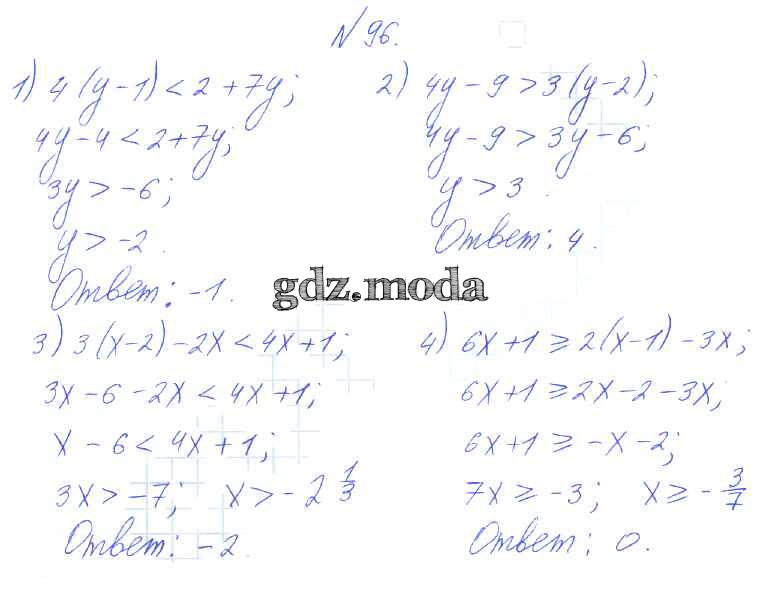 №96.
1) 4(y-1)<2+7y;
4y-4<2+7y;
3y>-6;
y>-2.
Ответ: -1.
2) 4y-9>3(y-2);
4y-9>3y-6;
y>3.
Ответ: 4.
gdz.moda
3) 3(x-2)-2x<4x+1;
3x-6-2x<4x+1;
x-6<4x+1;
3x>-7; x>-2 1/3
Ответ: -2.
4) 6x+1≥2(x-1)-3x;
6x+1≥2x-2-3x;
6x+1≥-x-2;
7x≥-3; x≥-3/7
Ответ: 0.